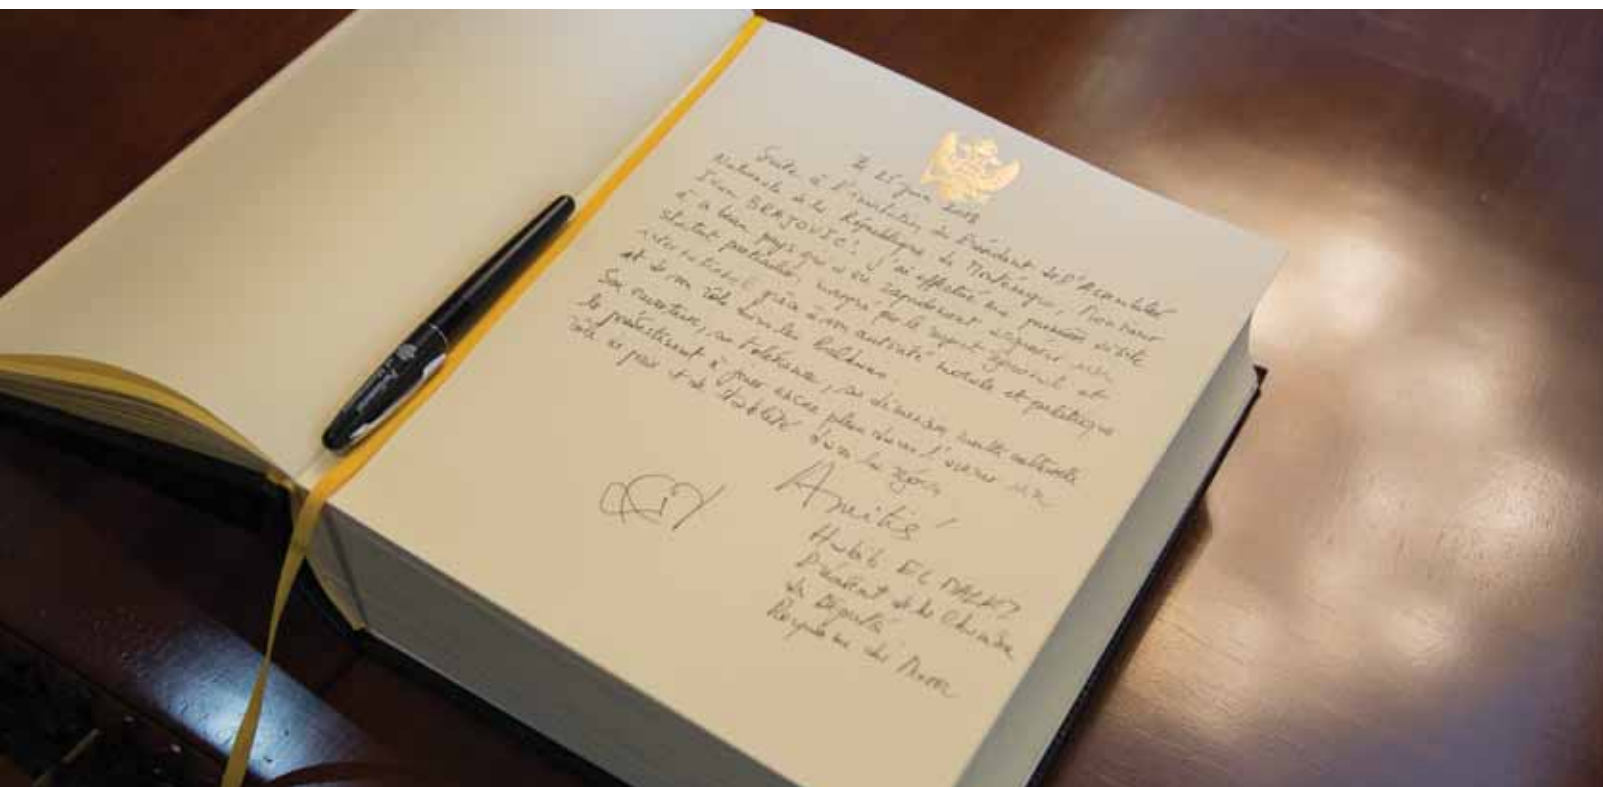 Le 25 juin 2018
Suite à l'invitation du Président de l'Assemblée
Nationale de la République du Monténégro, Monsieur
Ivan BRAJOVIC', j'ai effectué une première visite
à ce beau pays qui a su rapidement acquérir un
statut particulier, marqué par le respect régional et
international grâce à son autorité morale et politique
et de son rôle dans les Balkans.
Son ouverture, sa tolérance, sa dimension multiculturelle
le prédestinent à jouer encore plus dans l'avenir un
rôle de paix et de stabilité dans la région
Amitié
Habib EL MALKI
Président de la Chambre
des Députés
Royaume du Maroc